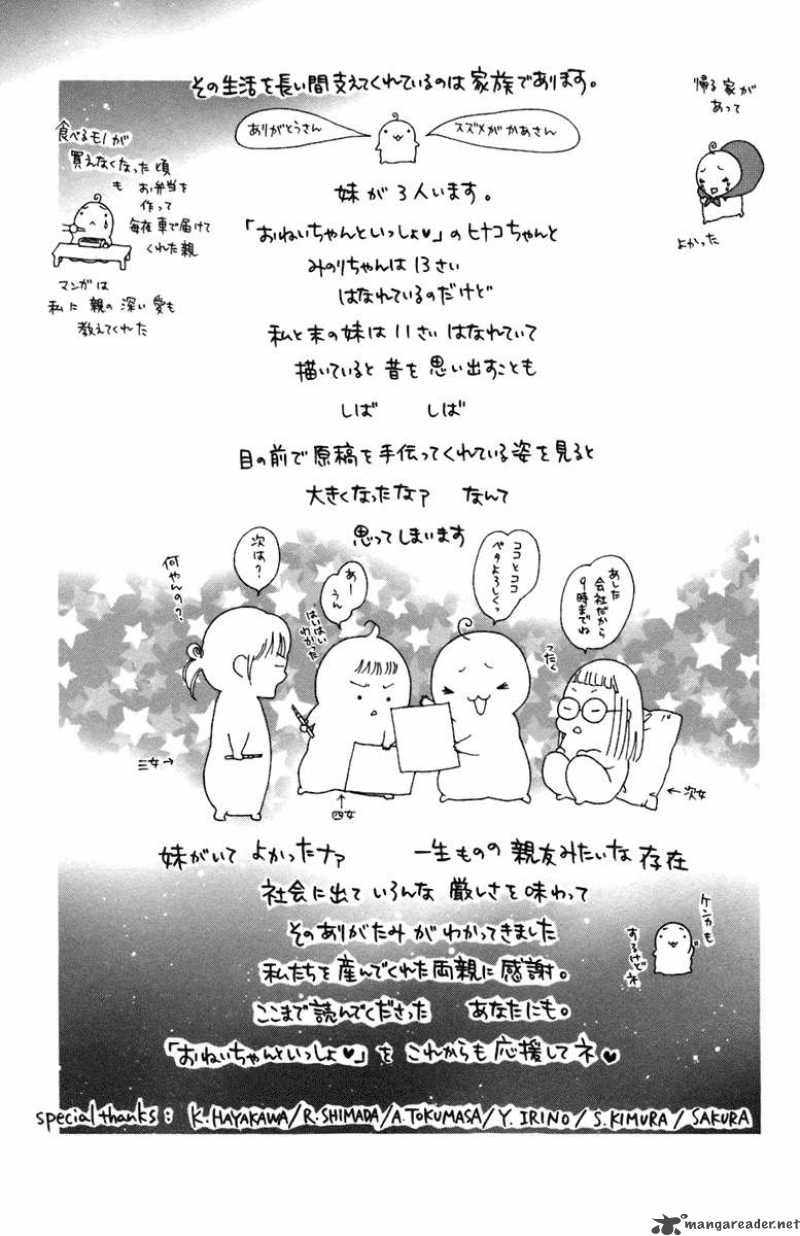 その生活を長い間支えてくれているのは家族であります。
帰る家が
あって
よかった
ありがとうさん
スズメがかあさん
食べるモノが
買えなくなった頃
も お弁当を
作って
毎夜車で届けて
くれた親
マンガは
私に親の深い愛も
教えてくれた
妹が3人います。
「おねいちゃんといっしょ♥」のヒナコちゃんと
みのりちゃんは13さい
はなれているのだけど
私と末の妹は11さいはなれていて
描いていると昔を思い出すことも
しば しば
目の前で原稿を手伝ってくれている姿を見ると
大きくなったなァ なんて
思ってしまいます
あした
会社だから
9時までね
ココとココ
ベタよろしくっ
あー
うん
はいはい
わかった
次は?
何やんの?
三女→
↑
四女
←次女
妹がいてよかったナァ 一生ものの親友みたいな存在
社会に出ていろんな厳しさを味わって
そのありがたみがわかってきました
ケンカも
するけどネ
私たちを産んでくれた両親に感謝。
ここまで読んでくださった あなたにも。
「おねいちゃんといっしょ♥」をこれからも応援してネ♥
special thanks : K.HAYAKAWA/R.SHIMADA/A.TOKUMASA/Y.IRINO/S.KIMURA/SAKURA
mangareader.net